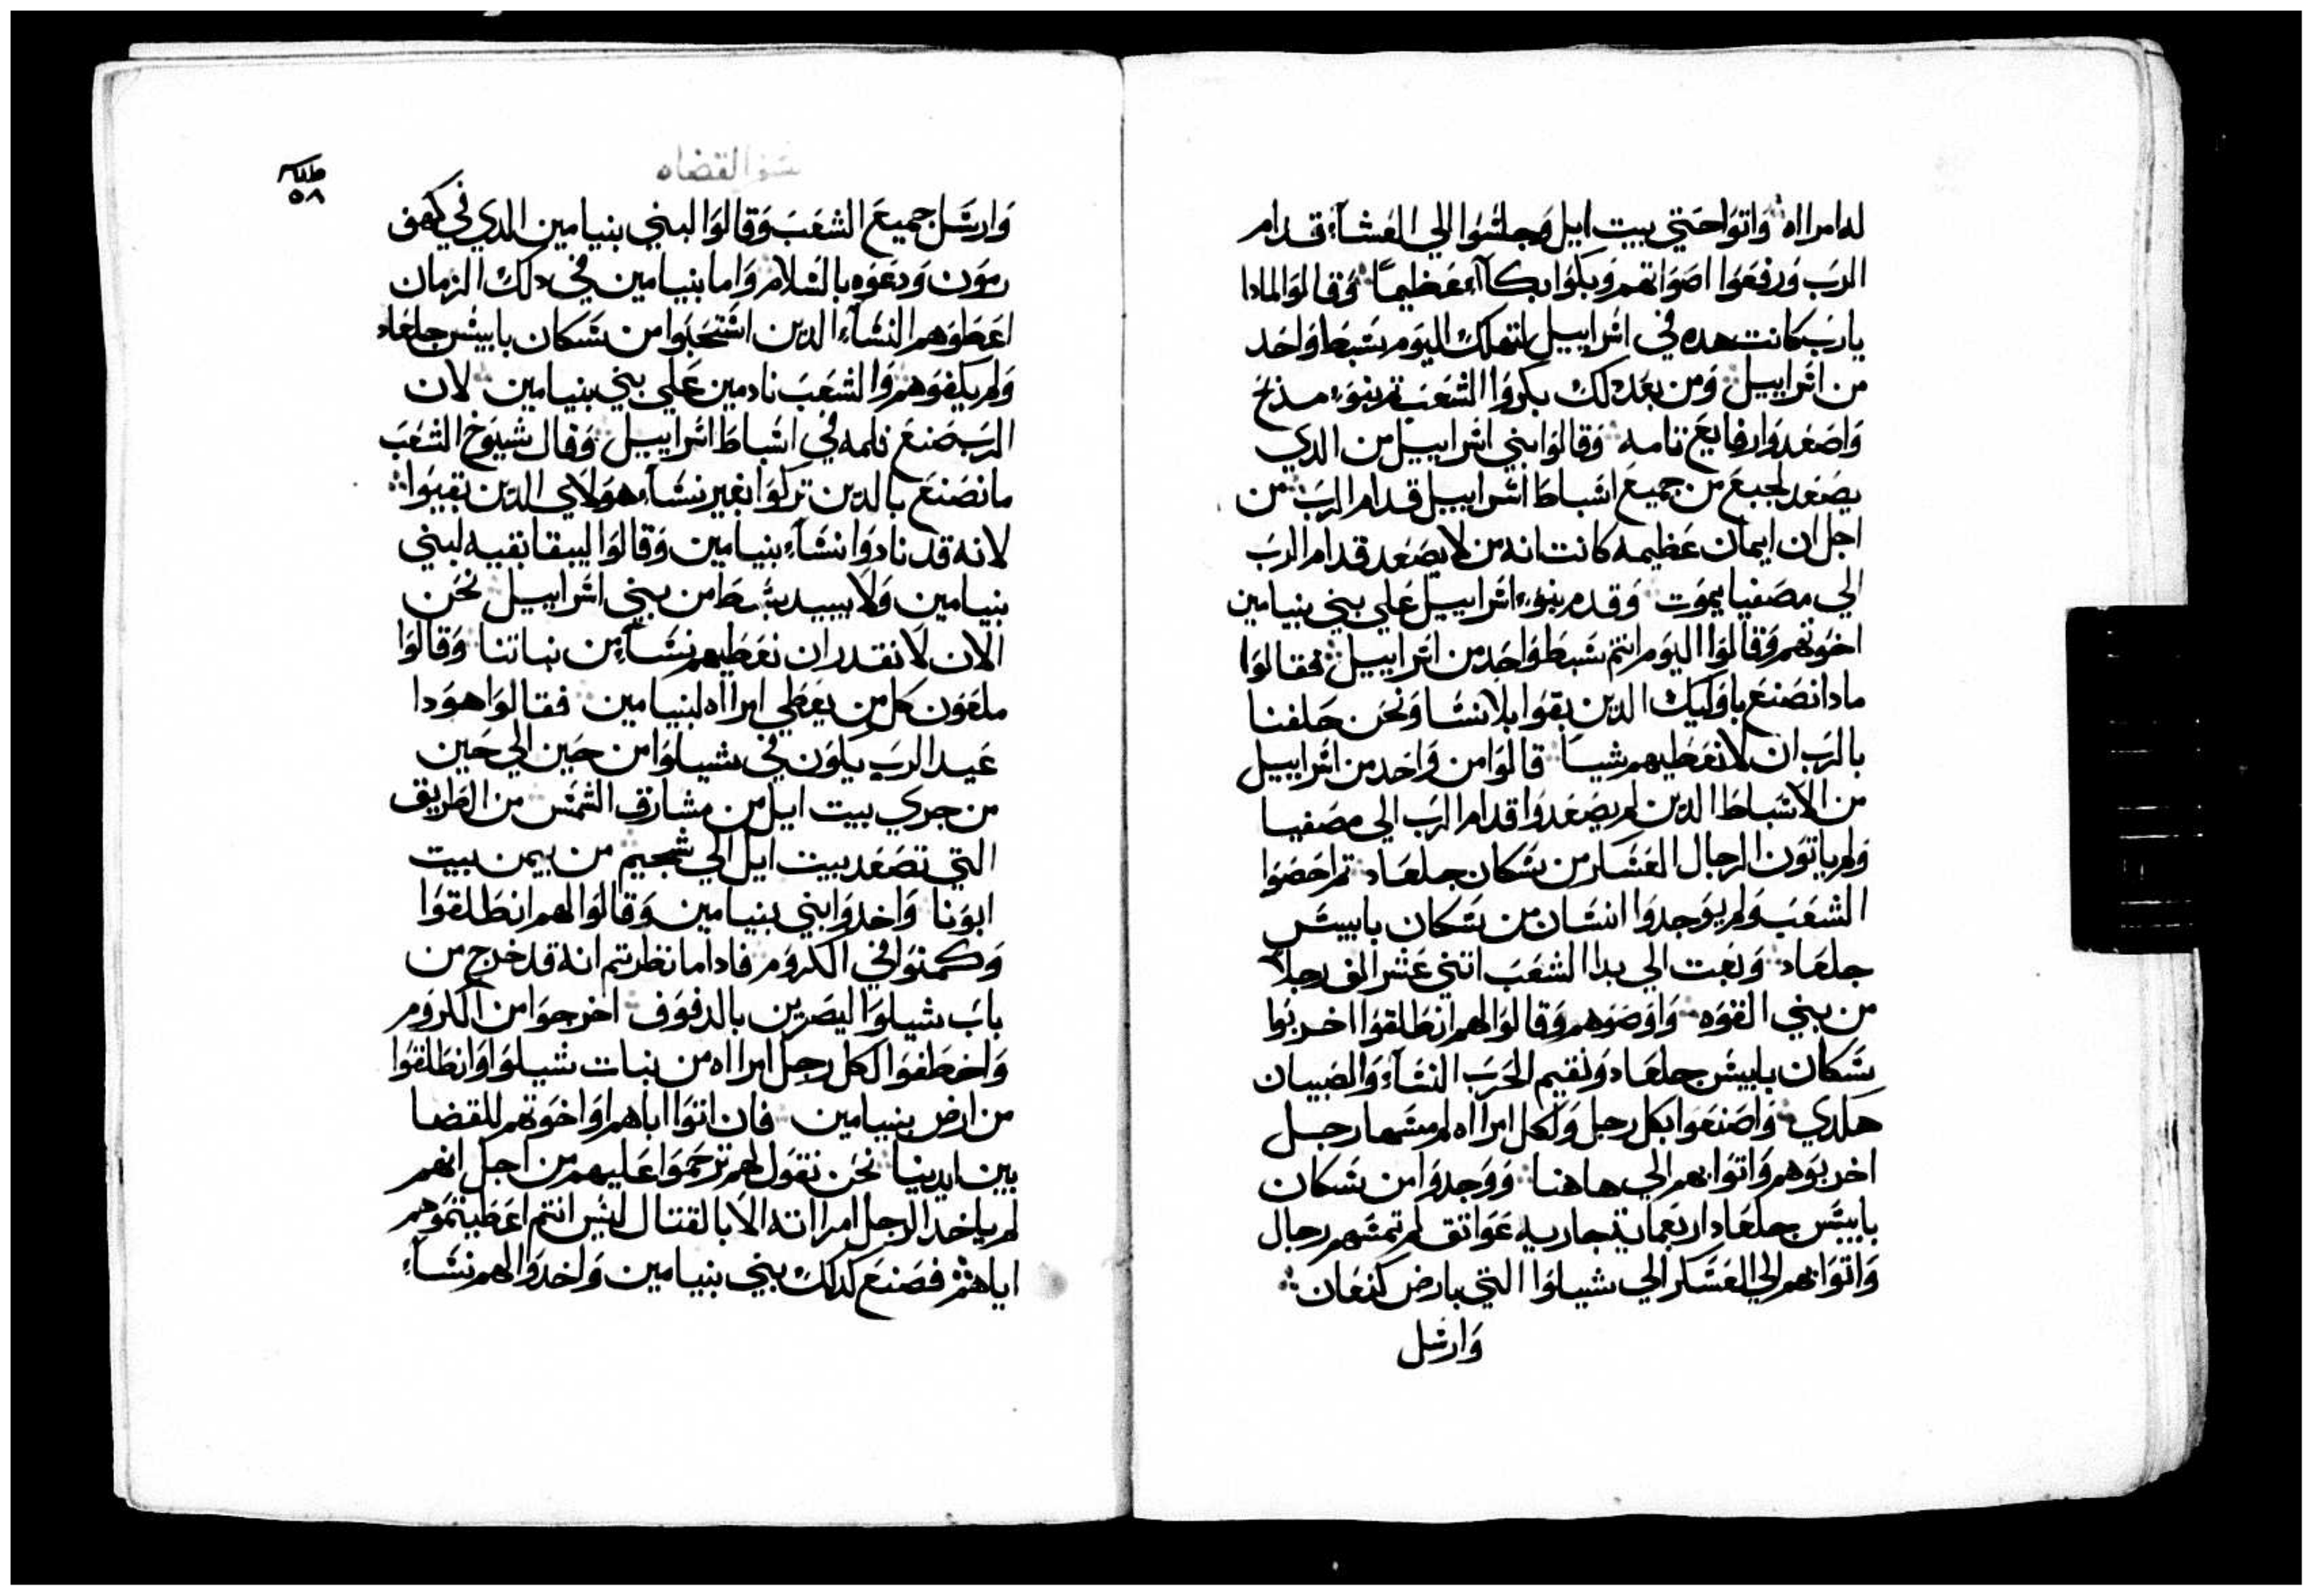 له امرااه وَاتوَا حَتي بيت ايل وَجلسُوا الي العَشآء قدام
الربَ وَرفعَوا اصَوَاتهم وَبكوَا بكآء عَظيمًا وَقالوَا لمادا
يا ربَ كانت هده في اسرَاييل لتهلك اليوَم سَبط وَاحَد
من اسرَاييل وَمن بعَد دلك بكروَا الشعَبَ وبنوَا مذبحَ
وَاصَعَدوَا رفايعَ تامه وَقالوَا بني اسرَاييل من الدي
يصَعَد لجميعَ من جميعَ اسَباطَ اسرَاييل قدام الربَ من
اجل ان ايمان عَظيمه كانت انه من لا يصَعَد قدام الربَ
الي مصَفيا يموَت وَقدم بنوَا اسرَاييل عَلي بني بنيامين
اخوَتهم وَقالوَا اليوَم انتم سَبط وَاحَد من اسرَاييل فقالوَا
مادا نصَنعَ باوَليك الدين بقوَا بلا نسَا وَنحَن حَلفنا
بالربَ ان لا نعَطيهم شيا قالوَا من وَاحَد من اسرَاييل
من الاسَباطَ الدين لم يصَعَدوَا قدام الربَ الي مصَفيا
وَلم ياتوَن الرجال العَسَكر من سَكان جلعَاد تم احَصَوَا
الشعَبَ وَلم يوَجدوَا انسَان من سَكان يابيسَ
جلعَاد وَبعَت الي بدا الشعَبَ اتني عَشر الف رجلا
من بني القوَه وَاوَصَوَهم وَقالوَا لهم انطَلقوَا اخربوَا
سَكان يابيسَ جلعَاد وَنقيم الحَربَ النسَآء وَالصَبيان
هكدي وَاصَنعَوَا بكل رجل وَلكل امرااه لم يمسَها رجل
اخربوَهم وَاتوَا بهم الي هاهنا وَوَجدوَا من سَكان
يابيسَ جلعَاد اربعَماية جاريه عَوَاتق لم تمسَهم رجال
وَاتوَا بهم الي العَسَكر الي شيلوَا التي بارض كنعَان
وَارسَل
سفر القضاه
٥٨
وَارسَل جميعَ الشعَبَ وَقالوَا لبني بنيامين الدي في كهف
رموَن وَدعَوَه بالسَلام وَاما بنيامين في دلك الزمان
اعَطَوَهم النسَآء الدين استَحَبوَا من سَكان يابيسَ جلعَاد
وَلم يكفوَهم وَالشعَبَ نادمين عَلي بني بنيامين لان
الربَ صَنعَ تلمه في اسَباطَ اسرَاييل وَقال شيوَخ الشعَبَ
ما نصَنعَ بالدين تركوَا بغير نسَآء هوَلاي الدين بقيوَا
لانه قد نادوَا نسَآء بنيامين وَقالوَا ليبقا بقيه لبني
بنيامين وَلا يبيد سَبطَ من بني اسرَاييل نحَن
الان لا نقدر ان نعَطَيهم نسَآء من بناتنا وَقالوَا
ملعَوَن كل من يعَطَي امرااه لبنيامين فقالوَا هوَدا
عَيد الربَ يكوَن في شيلوَا من حَين الي حَين
من جري بيت ايل من مشارق الشمسَ من الطَريق
التي تصَعَد بيت ايل الي شجيم من يمن بيت
ابوَنا وَاخدوَا بني بنيامين وَقالوَا لهم انطَلقوَا
وَكمنوَا في الكروَم فادا ما نظرتم انه قد خرج من
بابَ شيلوَا ليصَربن بالدفوَف اخرجوَا من الكروَم
وَاخطَفوَا لكل رجل امرااه من بنات شيلوَا وَانطَلقوَا
من ارض بنيامين فان اتوَا اباهم اوَ اخوَتهم للقضا
بين ايدينا نحَن نقوَل لهم ترحَموَا عَليهم من اجل انهم
لم ياخد الرجل امرااته الا بالقتال ليسَ انتم اعَطَيتموَهم
اياهم فصَنعَ كدلك بني بنيامين وَاخدوَا لهم نسَآء